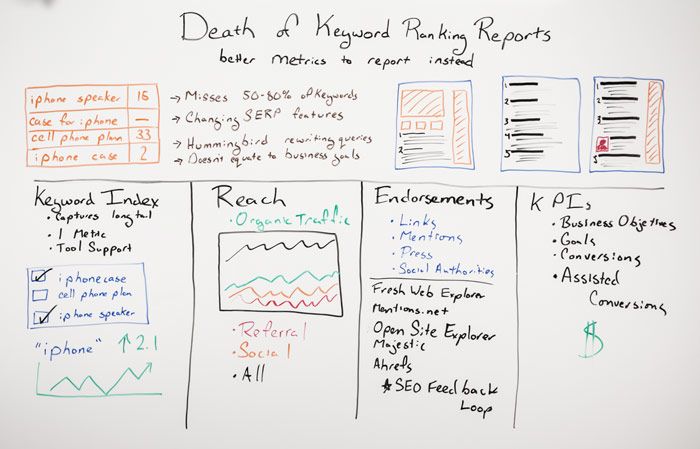 Death of Keyword Ranking Reports
better metrics to report instead
iphone speaker 15
case for iphone —
cell phone plan 33
iphone case 2
→ Misses 50-80% of keywords
→ Changing SERP features
→ Hummingbird rewriting queries
→ Doesn't equate to business goals
1
2
1
2
3
4
5
1
2
3
5
Keyword Index
• Captures long tail
• 1 Metric
• Tool Support
iphone case
cell phone plan
iphone speaker
"iphone" ↑ 2.1
Reach
• Organic Traffic
• Referral
• Social
• All
Endorsements
• Links
• Mentions
• Press
• Social Authorities
Fresh Web Explorer
Mentions.net
Open Site Explorer
Majestic
Ahrefs
☆ SEO Feedback
Loop
KPIs
• Business Objectives
• Goals
• Conversions
• Assisted
Conversions
$